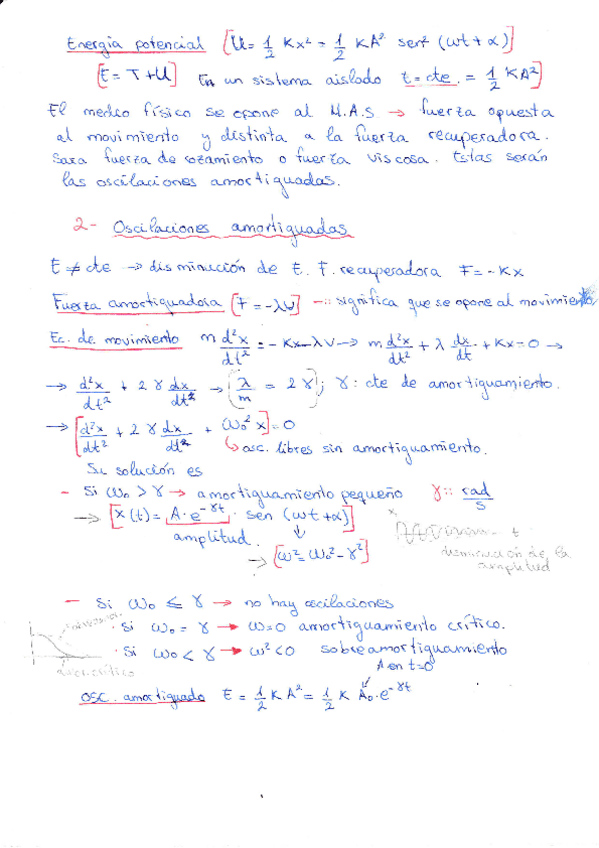 Energia potencial [U = 1/2 Kx² = 1/2 KA² sen² (ωt + α)]
[E = T + U] En un sistema aislado t = cte. = 1/2 KA²]
El medio físico se opone al M.A.S → fuerza opuesta
al movimiento y distinta a la fuerza recuperadora.
Sara fuerza de rozamiento o fuerza viscosa. Estas serán
las oscilaciones amortiguadas.
2- Oscilaciones amortiguadas
E ≠ cte → disminución de E. F. recuperadora F = - Kx
Fuerza amortiguadora [F = -λv] -:: significa que se opone al movimiento
Ec. de movimiento m d²x/dt² = - Kx - λv → m d²x/dt² + λ dx/dt + Kx = 0 →
→ d²x/dt² + 2γ dx/dt² → [λ/m = 2γ]; γ: cte de amortiguamiento.
→ [d²x/dt² + 2γ dx/dt² + ω₀² x] = 0
↳ osc. libres sin amortiguamiento.
Su solución es
- Si ω₀ > γ → amortiguamiento pequeño γ:: rad/s
→ [x(t) = A·e^-γt · sen (ωt + α)]
amplitud.
x t
disminución de la
amplitud
→ [ω² = ω₀² - γ²]
- Si ω₀ ≤ γ → no hay oscilaciones
· Si ω₀ = γ → ω = 0 amortiguamiento crítico.
· Si ω₀ < γ → ω² < 0 sobreamortiguamiento
A en t=0
osc. amortiguado E = 1/2 K A² = 1/2 K A₀·e^-γt